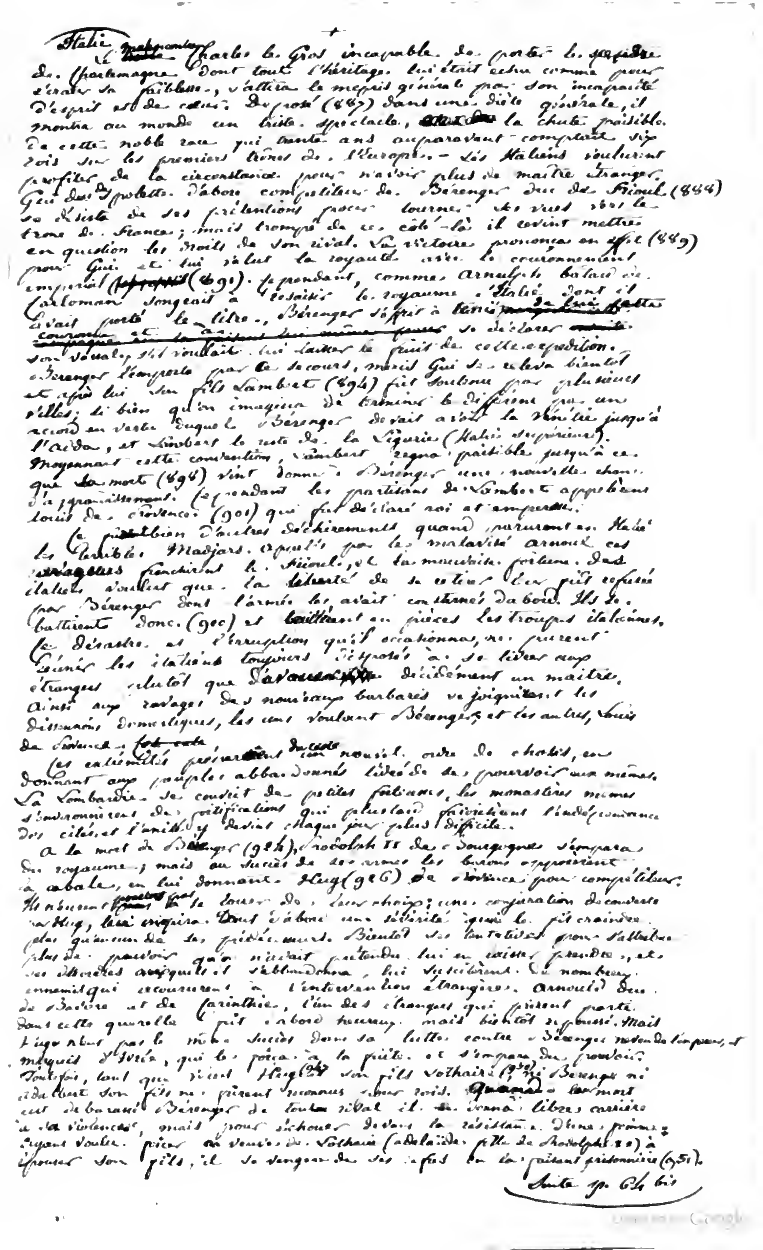 Italie
Charles le Gros incapable de porter le sceptre
de Charlemagne dont tout l'héritage lui était echu comme pour
sa faiblesse, s'attira le mepris générale par son incapacité
d'esprit et de cœur. Deposé (887) dans une diète générale, il
montra au monde un triste spectacle, la chute paisible
de cette noble race qui trente ans auparavant comptait six
rois sur les premiers trônes de l'Europe. - Les Italiens voulurent
profiter de la circonstance pour n'avoir plus de maître étranger.
Gui de Spolette d'abord competiteur de Bérenger duc de Frioul (888)
se désiste de ses prétentions pour tourner ses vues vers le
trone de France; mais trompé de ce coté-là il revint mettre
en question les droits de son rival. La victoire prononça en effet (889)
pour Gui et lui valut la royauté avec le couronnement
imperial (891). Cependant, comme Arnulph batard de
Carloman songeait à ressaisir le royaume d'Italie dont il
avait porté le titre, Bérenger s'offrit à se déclarer
son vassal, s'il voulait lui laisser le fruit de cette expedition.
Bérenger l'emporta par ce secours, mais Gui se releva bientôt
et après lui son fils Lambert (894) fut soutenu par plusieurs
villes; si bien qu'on imagina de terminer le différent par un
accord en vertu duquel Bérenger devait avoir la Vénétie jusqu'à
l'Adda, et Lambert le reste de la Ligurie (Italie superieure).
Moyennant cette convention, Lambert regna paisible jusqu'à ce
que sa mort (898) vint donner à Bérenger une nouvelle chance
d'agrandissement. Cependant les partisans de Lambert appelèrent
Louis de Provence (901) qui fut déclaré roi et empereur.
Ce fut bien d'autres déchirements quand parurent en Italie
les terribles Madjars. par le Arnoul ces
franchirent le Frioul, et la mauvaise fortune des
italiens voulut que la liberté de se retirer leur fût refusée
par Bérenger dont l'armée les avait consternés d'abord. Ils se
battirent donc (900) et taillèrent en pièces les troupes italiennes.
Ce désastre et l'irruption qu'il occasionna, ne purent
réunir les italiens toujours disposés à se livrer aux
étrangers plutôt que d'avouer décidément un maitre.
Ainsi aux ravages des nouveaux barbares se joignirent les
dissensions domestiques, les uns voulant Bérenger, et les autres, Louis
de Provence.
Ces extrémités du reste un nouvel ordre de choses, en
donnant aux peuples abbandonnés l'idée de se pourvoir eux mêmes.
La Lombardie se couvrit de petites forteresses, les monastères mêmes
s'environnèrent de fortifications qui plus tard favorisèrent l'indépendance
des cités, et l'unité y devint chaque jour plus difficile.
A la mort de Bérenger (924), Rodolph II de Bourgogne s'empara
du royaume; mais au succès de ses armes les barons opposèrent
la cabale, en lui donnant Hug (926) de Provence pour compétiteur.
Ils n'eurent pas à se louer de leur choix; une conjuration découverte
par Hug, lui inspira d'abord une sévérité qui le fit craindre
plus qu'aucun de ses prédécesseurs. Bientôt ses tentatives pour s'attribuer
plus de pouvoir qu'on n'avait prétendu lui en laisser prendre, et
ses désordres auxquels il s'abbandonna, lui suscitèrent de nombreux
ennemis qui recoururent à l'intervention étrangère. Arnould duc
de Bavière et de Carinthie, l'un des étrangers qui prirent parti
dans cette querelle fut d'abord heureux mais bientôt repoussé. Mais
Hugo n'eut pas le même succès dans sa lutte contre Bérenger et
marquis d'Ivrée, qui le força à la fuite et s'empara du pouvoir.
Toutefois, tant que vécut Hug (947) son fils Lothaire (950) ni Bérenger ni
Adalbert son fils ne furent reconnus pour rois. Quand leur mort
eut debarassé Bérenger de tout rival il donna libre carrière
à sa violence, mais pour échouer devant la résistance d'une femme;
ayant voulu forcer la veuve de Lothaire (Adelaïde fille de Rhodolphe II) à
épouser son fils, il se vengea de ses refus en la faisant prisonnière (951).
Suite p. 64 bis